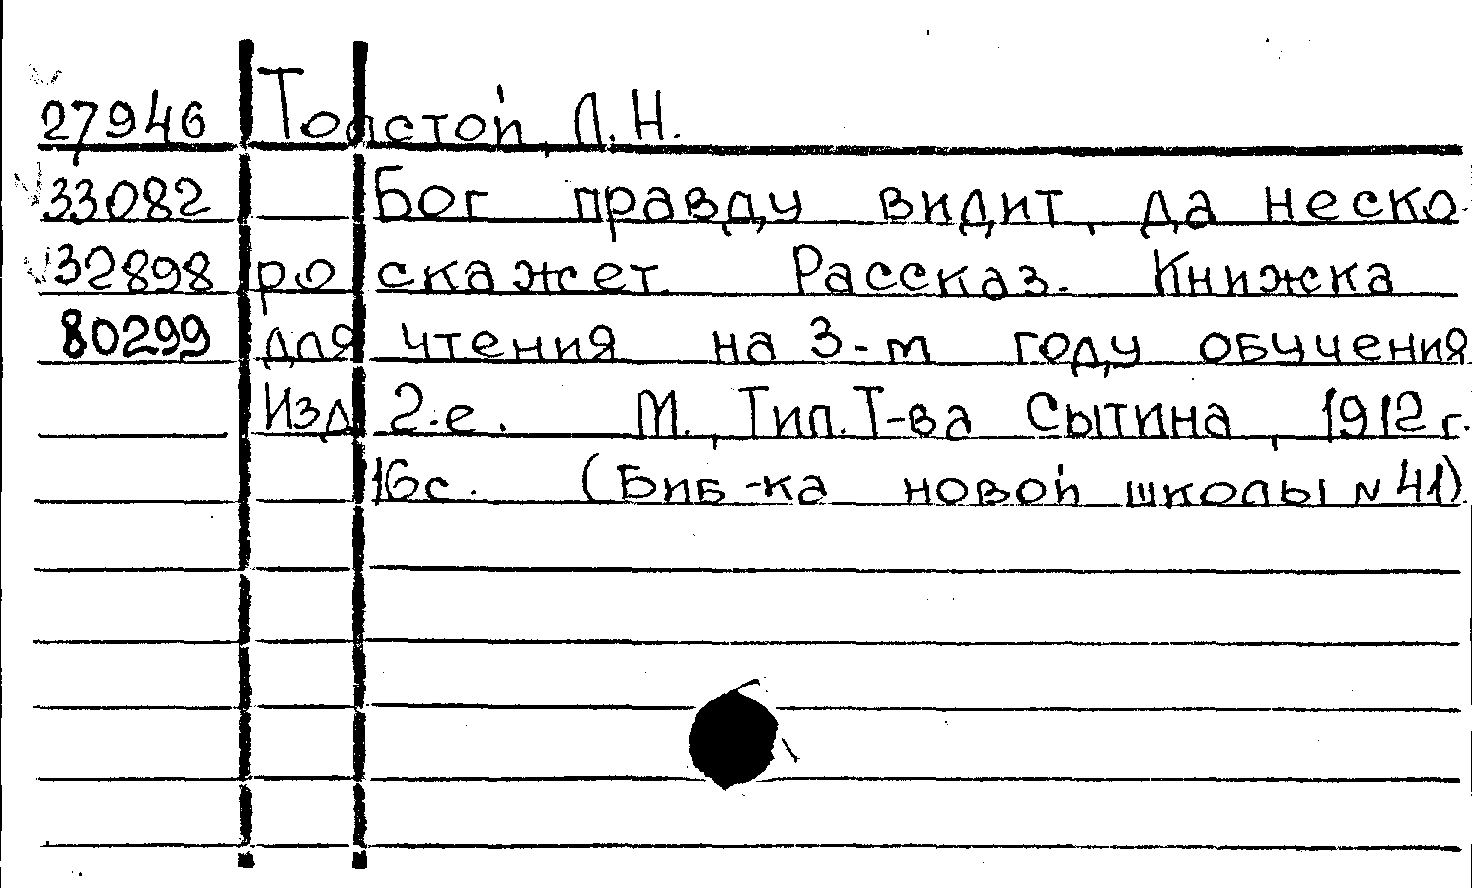 27946 Толстой, Л.Н.
33082 Бог правду видит, да неско
32898 ро скажет. Рассказ. Книжка
80299 для чтения на 3-м году обучения
Изд. 2-е. М., Тип. Т-ва Сытина, 1912 г.
16 с. (Биб-ка новой школы N 41)